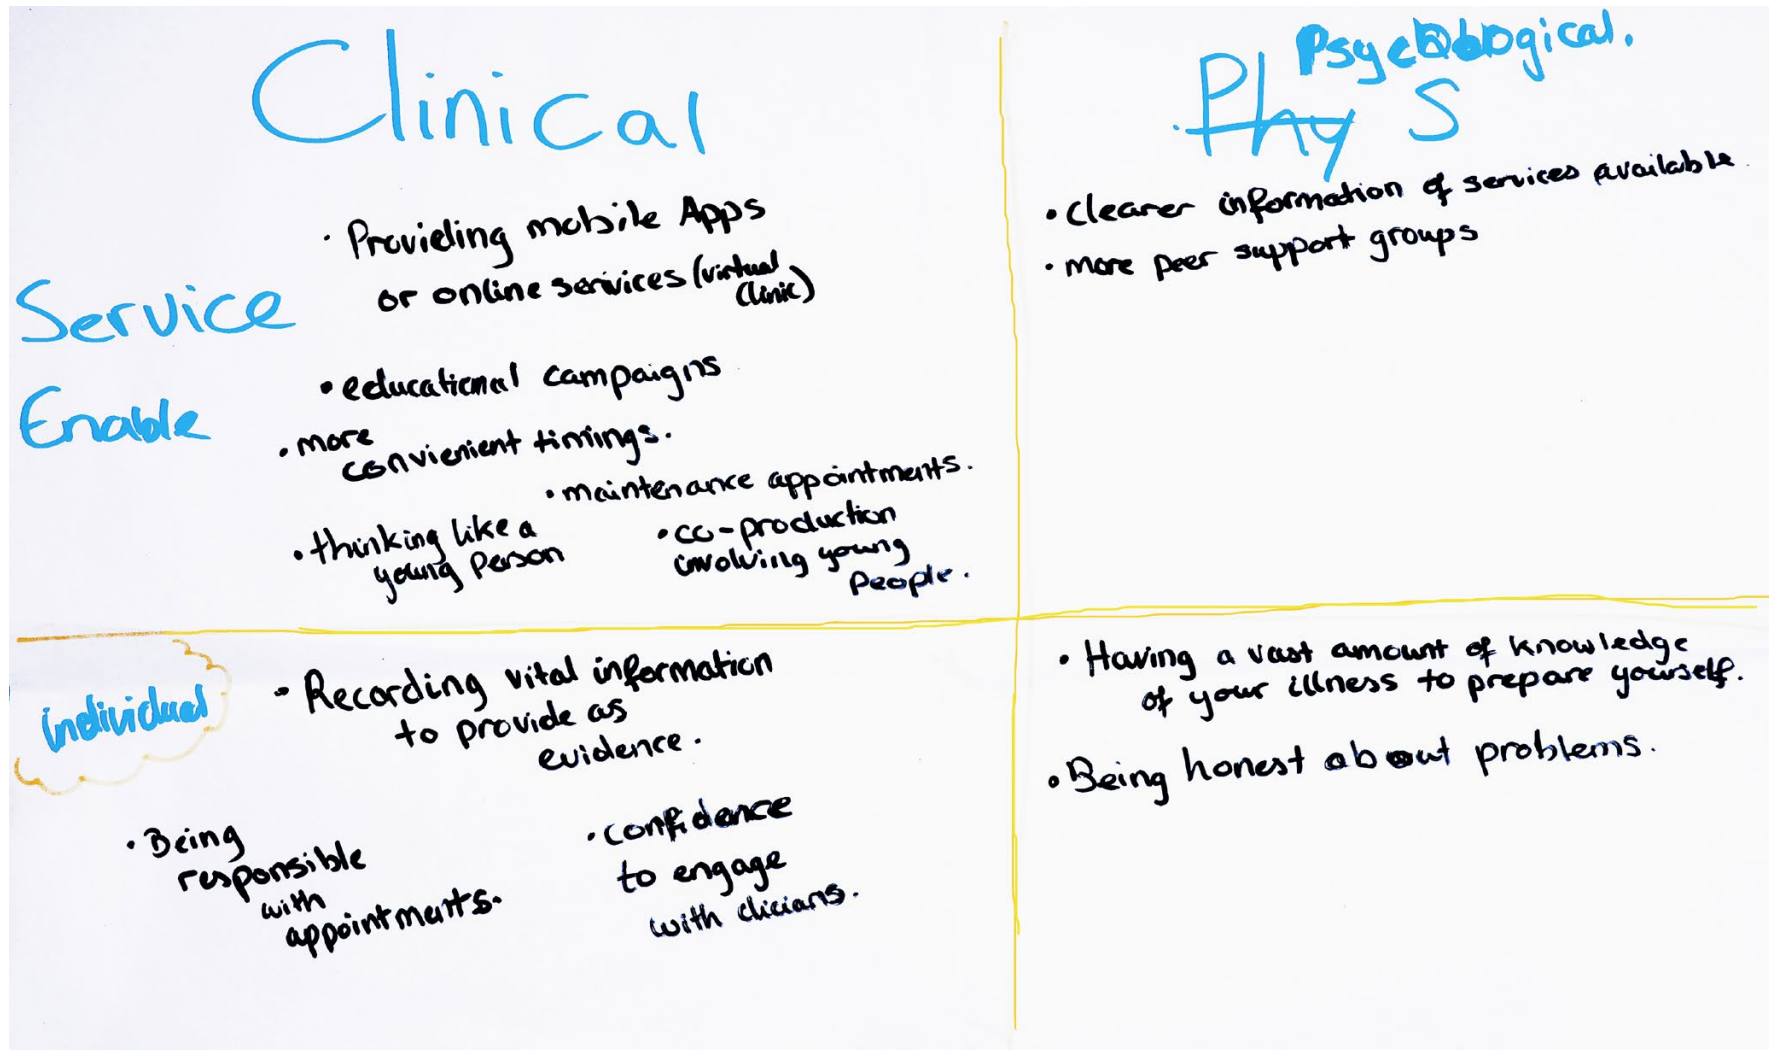 Clinical
Psychological.
Phy S
Service
Enable
· Providing mobile Apps
or online services (virtual
clinic)
• educational campaigns
• more
convienient timings.
• maintenance appointments.
• thinking like a
young person
• co-production
involving young
people.
• clearer information of services available
• more peer support groups
individual
- Recording vital information
to provide as
evidence.
• Being
responsible
with
appointments.
• confidence
to engage
with clicians.
• Having a vast amount of knowledge
of your illness to prepare yourself.
• Being honest about problems.